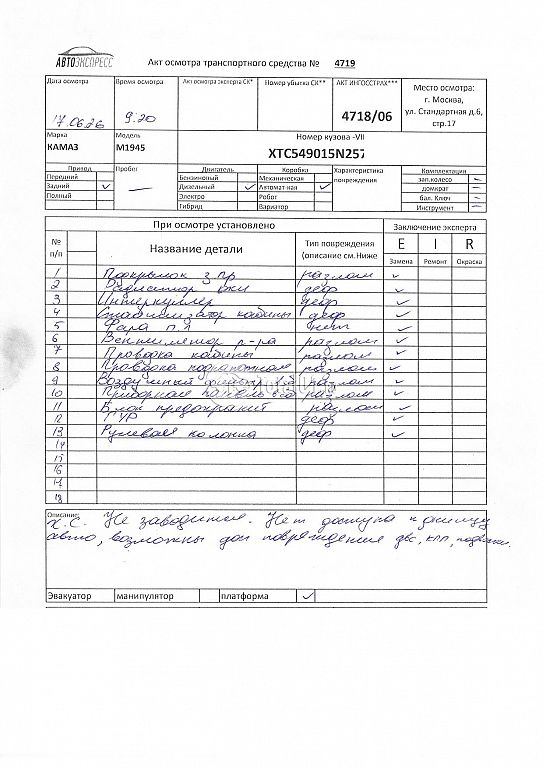 АВТОЭКСПРЕСС
Акт осмотра транспортного средства № 4719
Дата осмотра
Время осмотра
Акт осмотра эксперта СК*
Номер убытка СК**
АКТ ИНГОССТРАХ***
Место осмотра:
г. Москва,
ул. Стандартная д.6,
стр.17
17.06.26
9:20
4718/06
Марка
Модель
Номер кузова -VII
КАМАЗ
М1945
XTC549015N257
Привод
Пробег
Двигатель
Коробка
Характеристика
повреждения
Комплектация
Передний
Бензиновый
Механическая
зап.колесо —
Задний ✓
—
Дизельный ✓
Автомат-ная ✓
домкрат —
Полный
Электро
Робот
бал. Ключ —
Гибрид
Вариатор
Инструмент —
При осмотре установлено
Заключение эксперта
№
п/п
Название детали
Тип повреждения
(описание см.Ниже
E I R
Замена Ремонт Окраска
1 Подкрылок з пр разлом ✓
2 Радиатор деф ✓
3 Интеркуллер деф ✓
4 Стабилизатор кабины деф ✓
5 Фара п.л ✓
6 Вентилятор р-ра разлом ✓
7 Проводка кабины разлом ✓
8 Проводка разлом ✓
9 Воздушный фильтр разлом ✓
10 Приборная панель разлом ✓
11 Блок предохранит разлом ✓
12 ГУР деф ✓
13 Рулевая колонка деф ✓
14
15
16
18
Описание:
Х.С. Не заводится. Нет доступа к днищу
авто, возможны доп повреждения двс, кпп, подвески.
Эвакуатор манипулятор платформа ✓